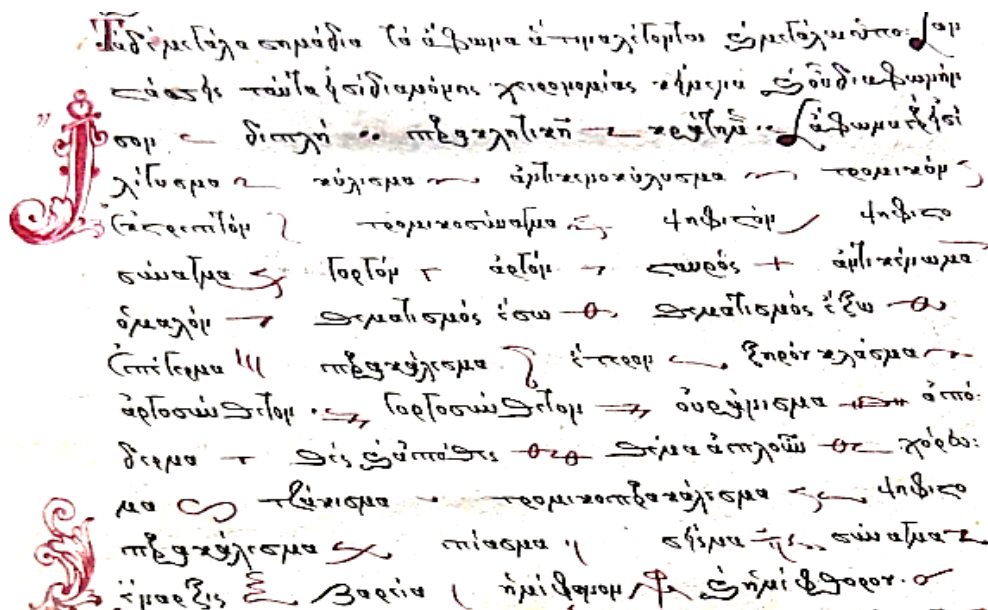 Τὰ δὲ μεγάλα σημάδια τὰ ἄφωνα ἅ τινα λέγονται καὶ μεγάλαι ὑπο:
στάσης ταῦτα εἰσὶ διαμόνης χειρονομίας κείμενα καὶ οὐ δια φωνήν
ἴσον διπλῆ παρακλητικὴ κράτημα ἄφωνα
λύγυσμα κύλισμα ἀντικενοκύλυσμα τρομικόν
ἐκστρεπτόν τρομικοσύναγμα ψηφιστόν ψηφιστο
σύναγμα γοργόν ἀργόν σταυρός ἀντικένωμα
ὁμαλόν θεματισμός ἔσω θεματισμός ἔξω
ἐπέγερμα παρακάλεσμα ἕτερον ξηρόν κλάσμα
ἀργοσύνθετον γοργοσύνθετον οὐράνισμα ἀπό:
δερμα θές καὶ ἀπόθες θέμα ἁπλοῦν χόρευ:
μα τζάκισμα τρομικοπαρακάλεσμα ψηφιστο
παρακάλεσμα πίασμα σεῖσμα σύναγμα
ἔναρξις βαρεία ἡμίφωνον καὶ ἡμίφθορον.